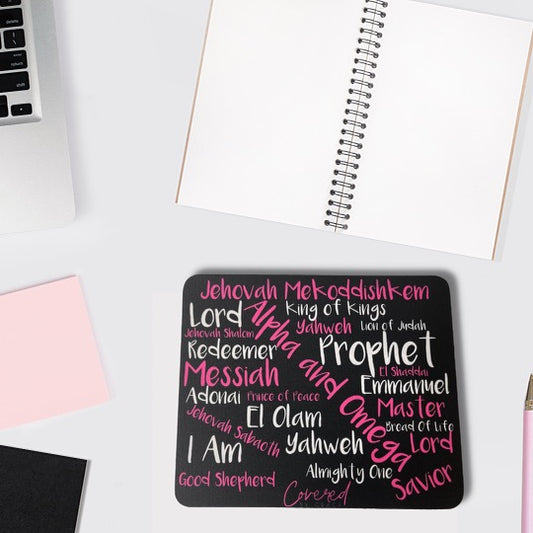 Jehovah Mekoddishkem
Lord King of Kings
Alpha and Omega
Jehovah Shalom Yahweh Lion of Judah
Redeemer Prophet
Messiah El Shaddai
Emmanuel
Adonai Prince of Peace Master
Jehovah Sabaoth El Olam Bread Of Life
I Am Yahweh Lord
Almighty One
Good Shepherd Savior
Covered